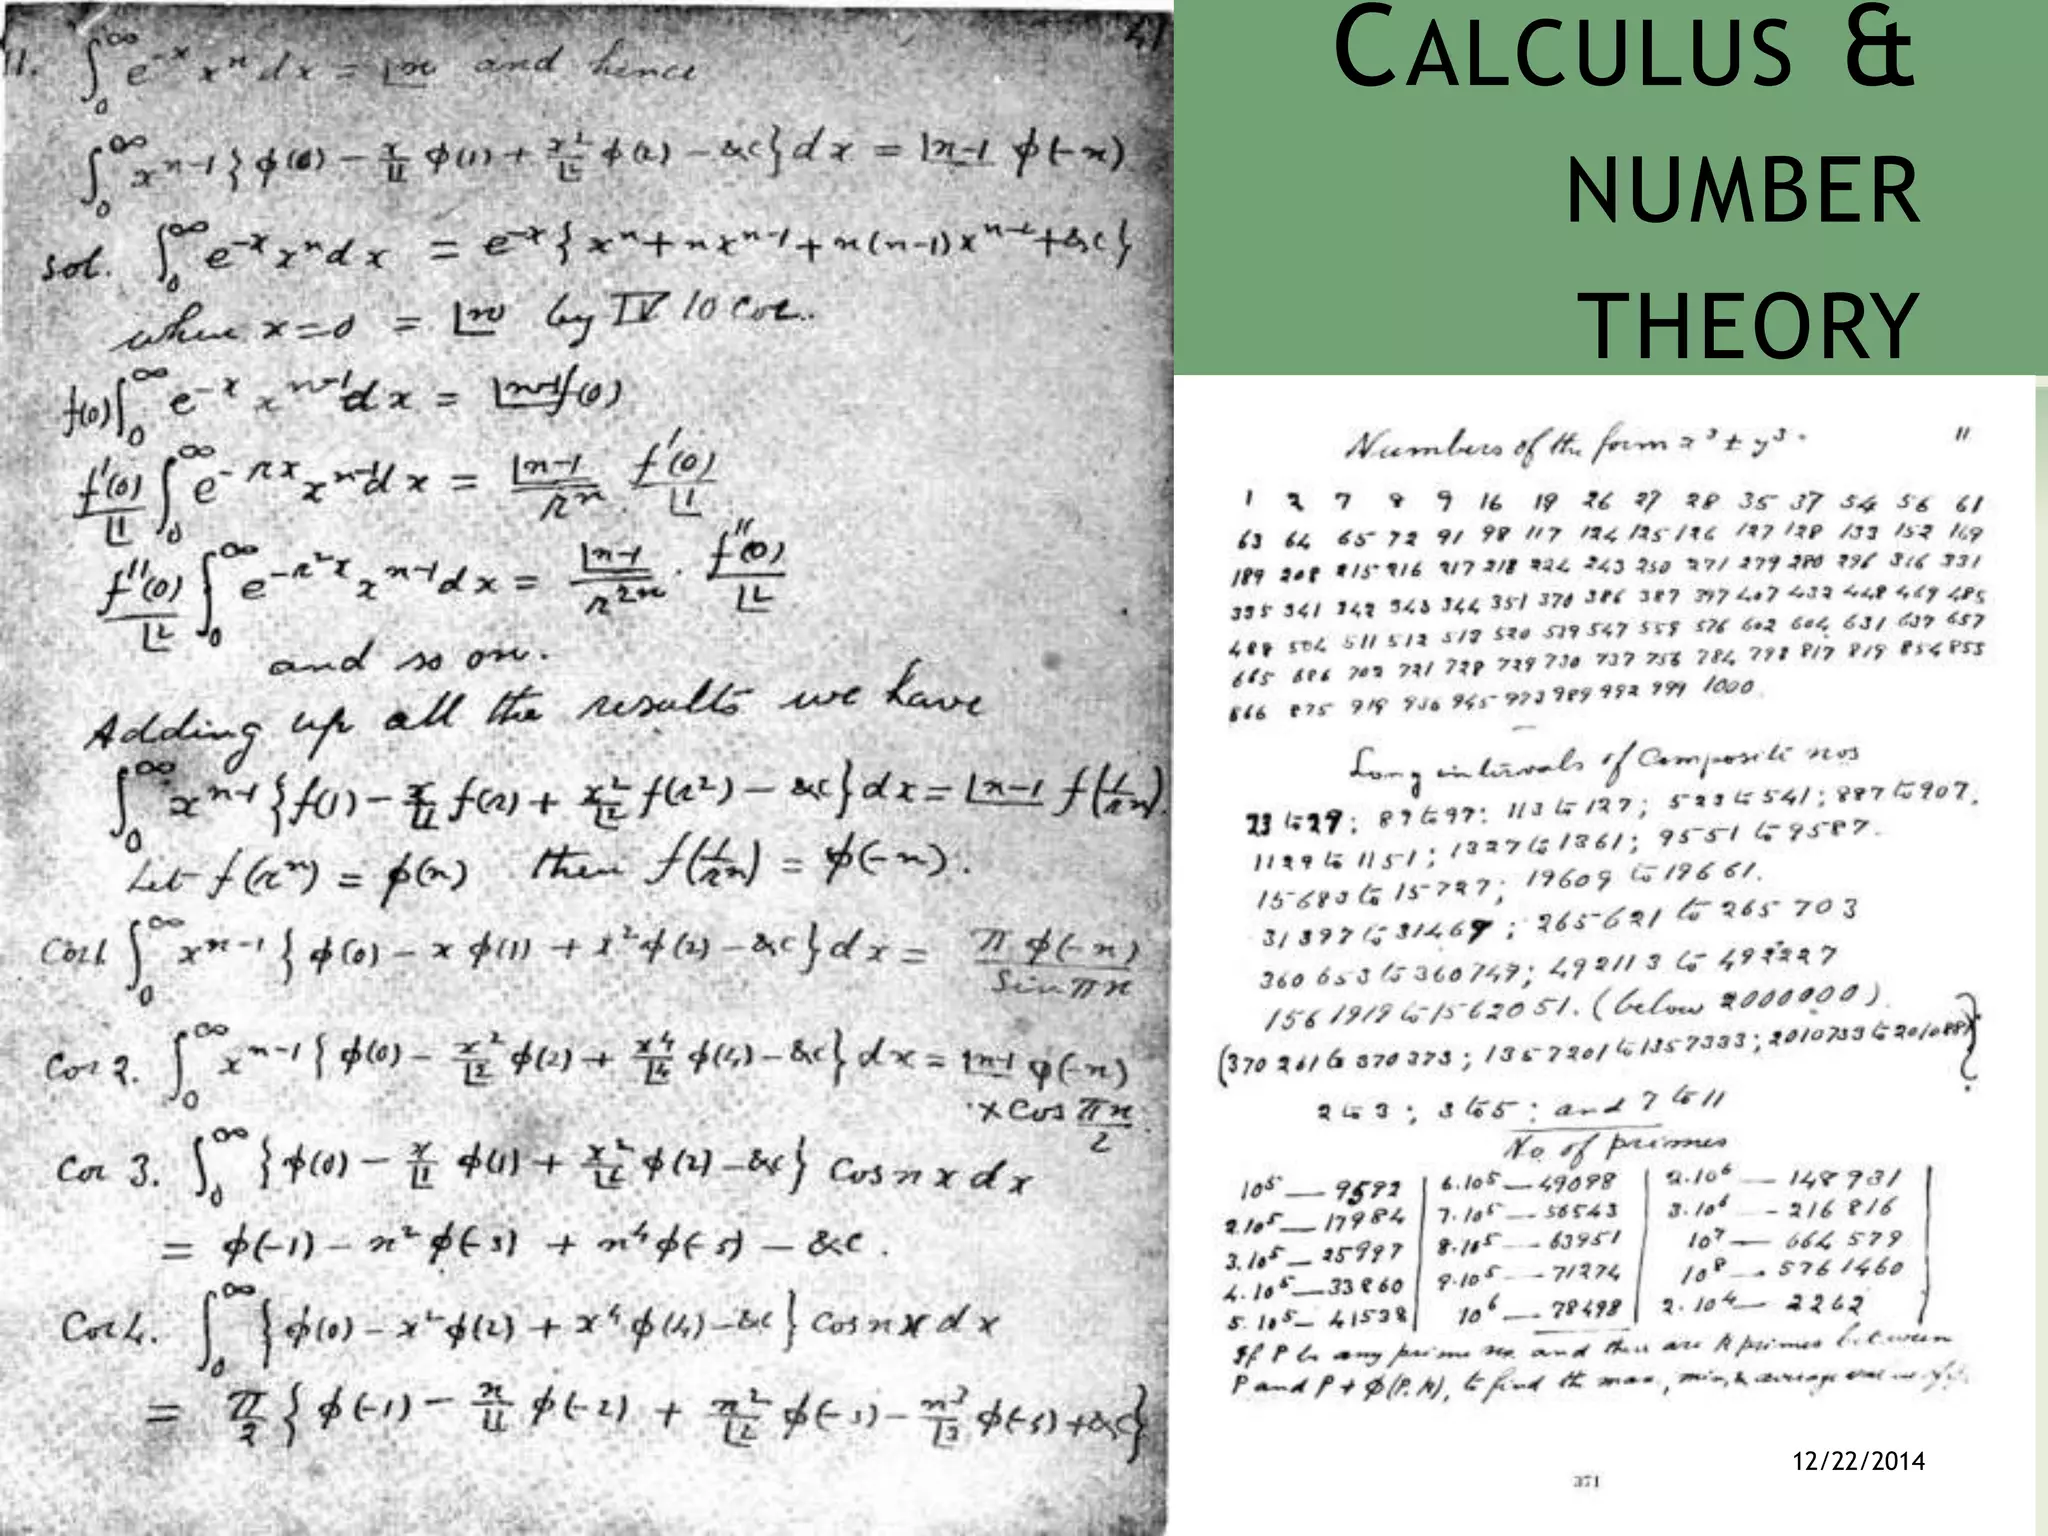 41
11. ∫₀^∞ e^{-x} x^n dx = |n and hence
∫₀^∞ x^{n-1} { φ(0) − x/|1 φ(1) + x²/|2 φ(2) − &c } dx = |n-1 φ(-n)
Sol. ∫₀^∞ e^{-x} x^n dx = e^{-x} { x^n + n x^{n-1} + n(n-1) x^{n-2} + &c }
when x=0 = |n by IV 10 Cor.
f(0) ∫₀^∞ e^{-x} x^{n-1} dx = |n-1 f(0)
f'(0)/|1 ∫₀^∞ e^{-rx} x^{n-1} dx = |n-1/r^n . f'(0)/|1
f''(0)/|2 ∫₀^∞ e^{-r²x} x^{n-1} dx = |n-1/r^{2n} . f''(0)/|2
and so on.
Adding up all the results we have
∫₀^∞ x^{n-1} { f(1) − x/|1 f(r) + x²/|2 f(r²) − &c } dx = |n-1 f(1/r^n).
Let f(r^n) = φ(n) then f(1/r^n) = φ(-n).
Cor 1. ∫₀^∞ x^{n-1} { φ(0) − x φ(1) + x² φ(2) − &c } dx = π φ(-n)/Sin πn
Cor 2. ∫₀^∞ x^{n-1} { φ(0) − x²/|2 φ(2) + x⁴/|4 φ(4) − &c } dx = |n-1 φ(-n)
× Cos πn/2.
Cor 3. ∫₀^∞ { φ(0) − x/|1 φ(1) + x²/|2 φ(2) − &c } Cos nx dx
= φ(-1) − n² φ(-3) + n⁴ φ(-5) − &c.
Cor 4. ∫₀^∞ { φ(0) − x² φ(2) + x⁴ φ(4) − &c } Cos nx dx
= π/2 { φ(-1) − n/|1 φ(-2) + n²/|2 φ(-3) − n³/|3 φ(-4) + &c }
CALCULUS &
NUMBER
THEORY
Numbers of the form x³ ± y³. 11
1 2 7 8 9 16 19 26 27 28 35 37 54 56 61
63 64 65 72 91 98 117 124 125 126 127 128 133 152 169
189 208 215 216 217 218 224 243 250 271 279 280 296 316 331
335 341 342 343 344 351 370 386 387 397 407 432 448 469 485
488 504 511 512 513 520 539 547 559 576 602 604 631 637 657
665 686 702 721 728 729 730 737 756 784 793 817 819 854 855
866 875 919 936 945 973 989 992 999 1000.
Long intervals of Composite nos
23 to 29; 89 to 97; 113 to 127; 523 to 541; 887 to 907.
1129 to 1151; 1327 to 1361; 9551 to 9587.
15683 to 15727; 19609 to 19661.
31397 to 31469; 265621 to 265703
360653 to 360749; 492113 to 492227
1561919 to 1562051. (below 2000000)
(370261 to 370373; 1357201 to 1357333; 2010733 to 2010881)
2 to 3; 3 to 5; and 7 to 11
No. of primes
10⁵ — 9592 6.10⁵ — 49098 2.10⁶ — 148931
2.10⁵ — 17984 7.10⁵ — 56543 3.10⁶ — 216816
3.10⁵ — 25997 8.10⁵ — 63951 10⁷ — 664579
4.10⁵ — 33860 9.10⁵ — 71274 10⁸ — 5761460
5.10⁵ — 41538 10⁶ — 78498 2.10⁴ — 2262
If P be any prime no. and there are n primes between
P and P + φ(P, n), to find the max, min, & average
12/22/2014
371